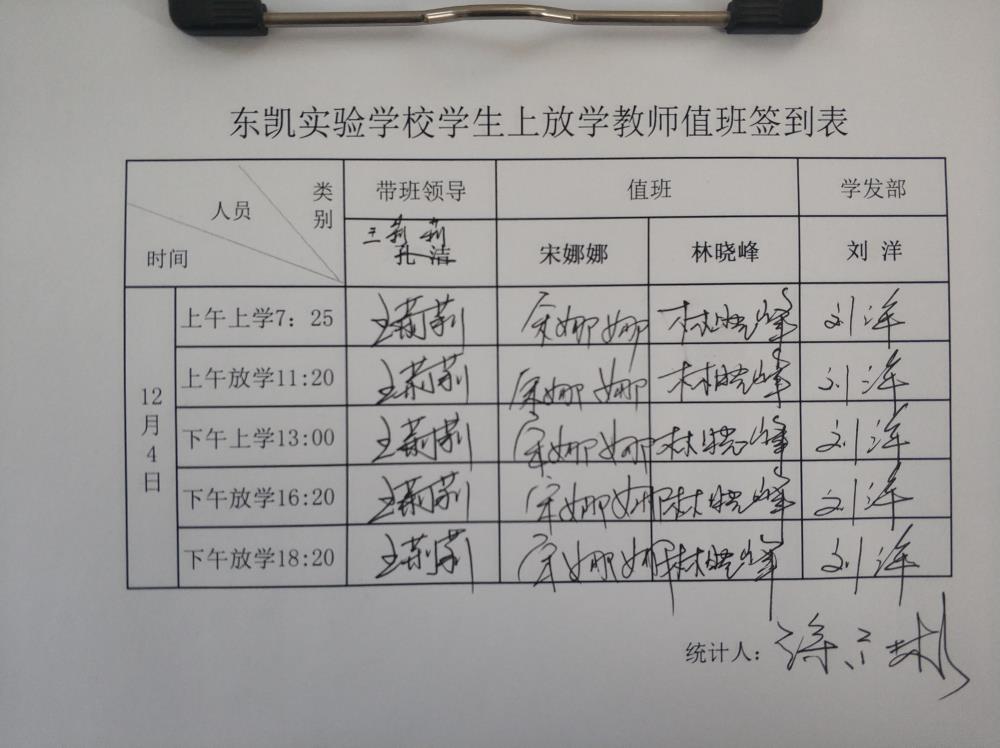 东凯实验学校学生上放学教师值班签到表
类别 人员 时间 带班领导 值班 学发部
王莉莉
孔洁 宋娜娜 林晓峰 刘洋
12月4日
上午上学7：25 王莉莉 宋娜娜 林晓峰 刘洋
上午放学11:20 王莉莉 宋娜娜 林晓峰 刘洋
下午上学13:00 王莉莉 宋娜娜 林晓峰 刘洋
下午放学16:20 王莉莉 宋娜娜 林晓峰 刘洋
下午放学18:20 王莉莉 宋娜娜 林晓峰 刘洋
统计人：